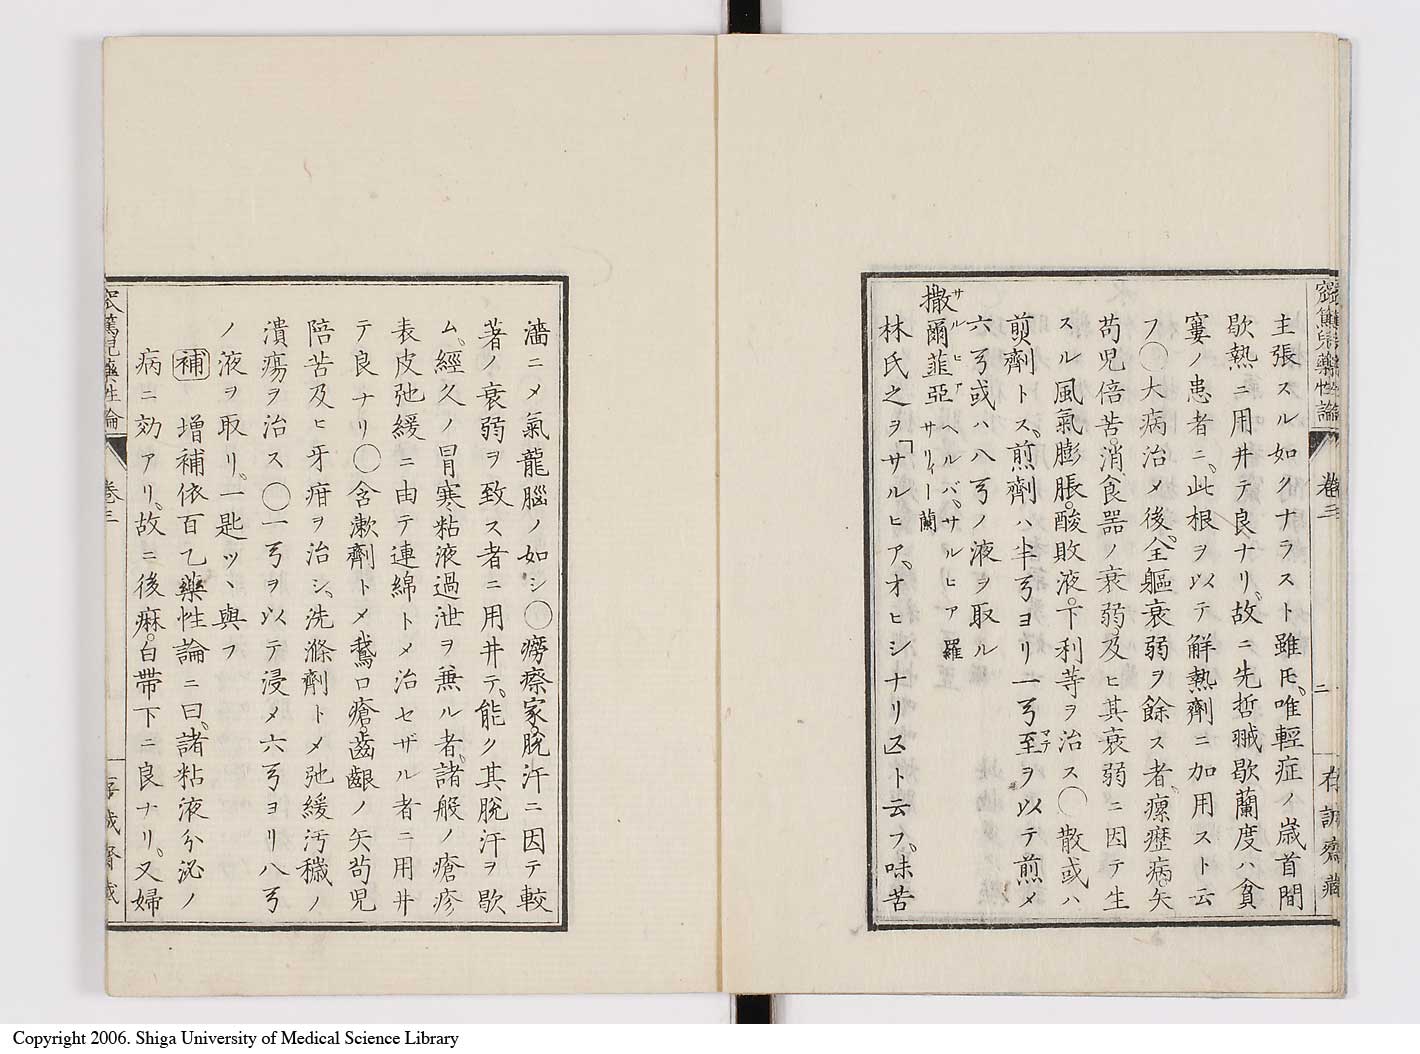 窊篤兒藥性論 卷三 二 存誠齋藏
主張スル如クナラスト雖𪜈。唯輕症ノ歳首間
歇熱ニ用井テ良ナリ。故ニ先哲䎺歇蘭度ハ貧
窶ノ患者ニ。此根ヲ以テ解熱劑ニ加用スト云
フ〇大病治メ後。全軀衰弱ヲ餘ス者。瘰癧病。矢
苟児倍苦。消食器ノ衰弱。及ヒ其衰弱ニ因テ生
スル風氣膨脹。酸敗液。下利等ヲ治ス〇散或ハ
煎劑トス。煎劑ハ半弓ヨリ一弓至マテヲ以テ煎メ
六弓或ハ八弓ノ液ヲ取ル
撒爾菲亞 サルヒア ヘルバ。サルヒア 羅 サリィー 蘭
林氏之ヲ「サルヒア。オヒシナリス」ト云フ。味苦
濇ニメ氣龍腦ノ如シ〇癆瘵家。脫汗ニ因テ較
著ノ衰弱ヲ致ス者ニ用井テ。能ク其脫汗ヲ歇
ム。經久ノ冒寒。粘液過泄ヲ兼ル者。諸般ノ瘡疹。
表皮弛緩ニ由テ連綿トメ治セザル者ニ用井
テ良ナリ〇含漱劑トメ鵞口瘡。齒齦ノ矢苟児
陪苦及ヒ牙疳ヲ治シ。洗滌劑トメ弛緩汚穢ノ
潰瘍ヲ治ス〇一弓ヲ以テ浸メ六弓ヨリ八弓
ノ液ヲ取リ。一匙ツヽ與フ
補 增補依百乙藥性論ニ曰。諸粘液分泌ノ
病ニ効アリ。故ニ後麻。白帶下ニ良ナリ。又婦
窊篤兒藥性論 卷三
Copyright 2006. Shiga University of Medical Science Library